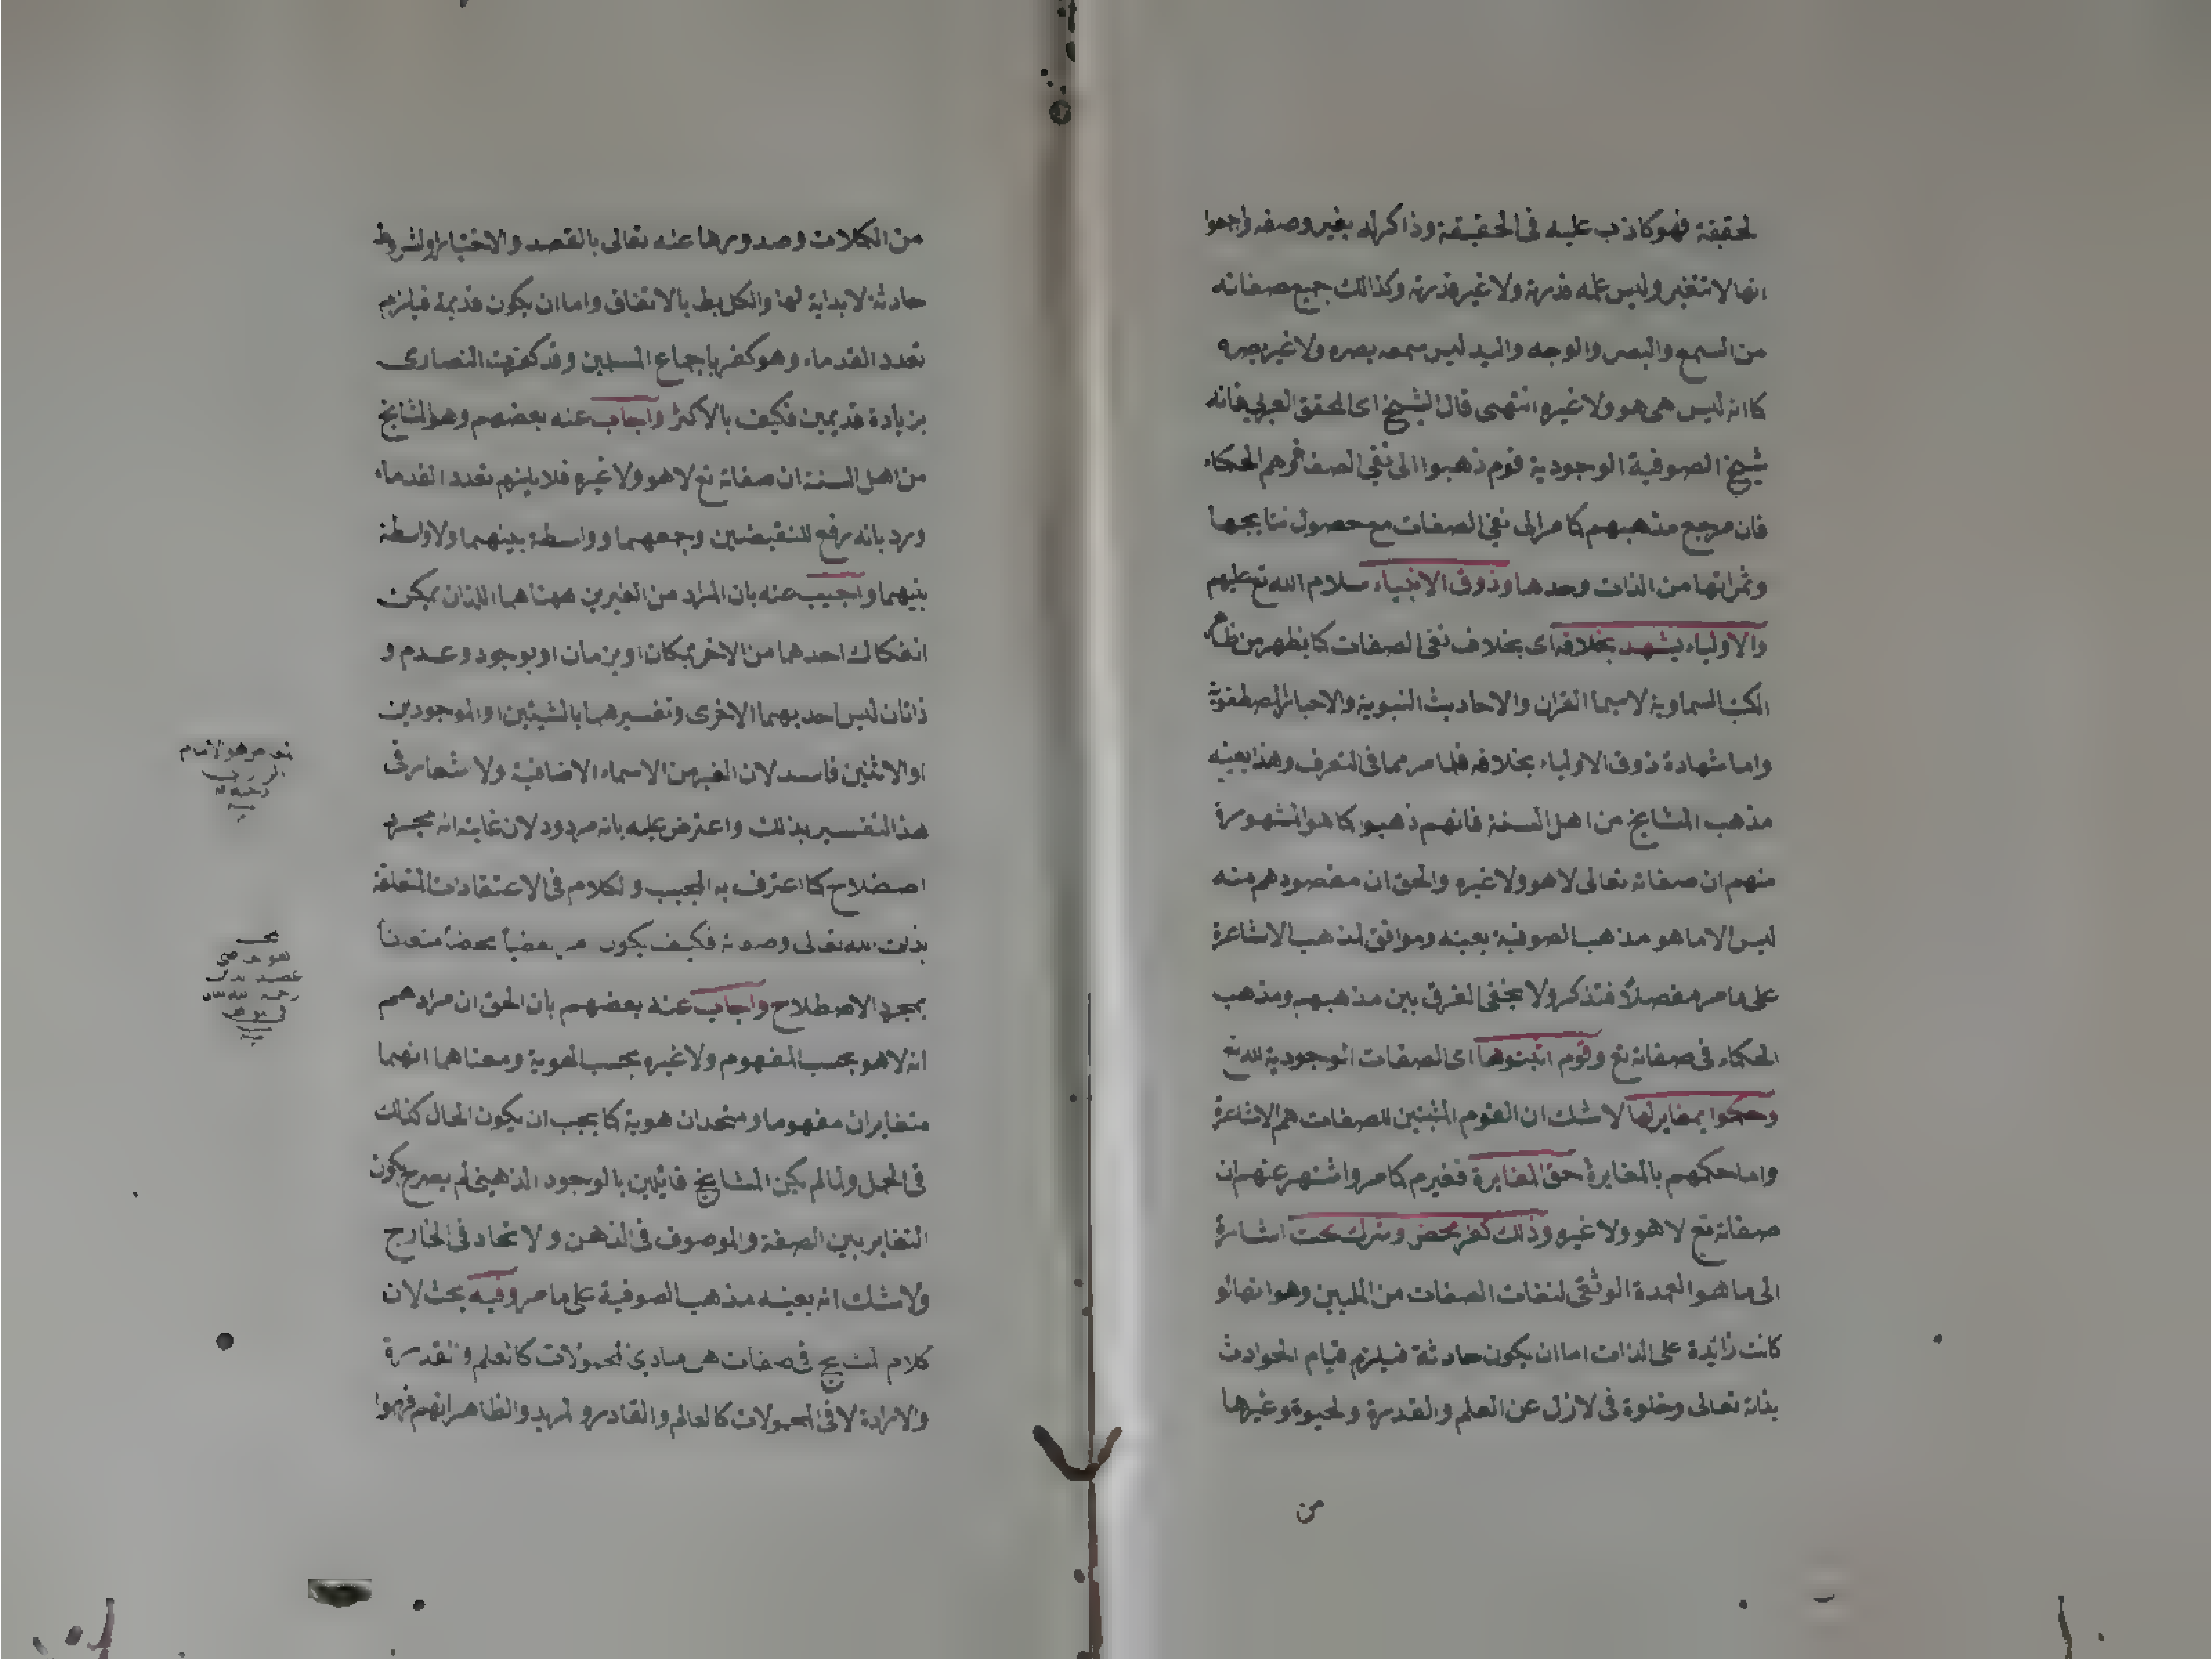 لحقيقة فهو كاذب عليه في الحقيقة وذاكر له بغير وصفه واجمعوا
انها لا تتغير وليس علمه قدرته ولا غير قدرته وكذالك جميع صفاته
من السمع والبصر والوجه واليد ليس سمعه بصره ولا غير بصره
كما انه ليس هي هو ولا غيره انتهى قال الشيخ اى المحقق العربي فانه
شيخ الصوفية الوجودية قوم ذهبوا الى نفي الصفات وهم الحكماء
فان مرجع مذهبهم كما مر الى نفي الصفات مع حصول نتايجها
وثمراتها من الذات وحدها وذوق الانبياء سلام الله تع عليهم
والاولياء يشهد بخلافه اى بخلاف نفى الصفات كما يظهر من ظاهر
الكتب السماوية لا سيما القران والاحاديث النبوية والاخبار المصطفوية
واما شهادة ذوق الاولياء بخلافه فلما مر مما في التعرف وهذا بعينه
مذهب المشايخ من اهل السنة فانهم ذهبوا كما هو المشهورة
منهم ان صفاته تعالى لا هو ولا غيره والحق ان مقصودهم منه
ليس الا ما هو مذهب الصوفية بعينه وموافق لمذهب الاشاعرة
على ما مر مفصلاً فتذكر ولا يخفى الفرق بين مذهبهم ومذهب
الحكماء في صفاته تع وقوم اثبتوها اى الصفات الوجودية لله تع
وحكموا بمغايرتها لا شك ان القوم المثبتين للصفات هم الاشاعرة
واما حكمهم بالمغايرة حق المغايرة فغيرم كما مر واشتهر عنهم ان
صفاته تع لا هو ولا غيره وذلك كفر محض وشرك بحت اشارة
الى ما هو العمدة الوثقى لنفات الصفات من المليين وهو انها لو
كانت زائدة على الذات اما ان يكون حادثة فيلزم قيام الحوادث
بذاته تعالى وخلوة في لازل عن العلم والقدرة ولحيوة وغيرها
من
من الكلات وصدورها عنه تعالى بالقصد والاختيار او لشروط
حادثة لا بداية لها والكل بط بالاتفاق واما ان يكون قديمة فيلزم
تعدد القدماء وهو كفر باجماع المسلمين وقد كفرت النصارى
بزيادة قديمين فكيف بالاكثر واجاب عنه بعضهم وهو المشايخ
من اهل السنة ان صفاته تع لا هو ولا غيره فلا يلزم تعدد القدماء
ورد بانه رفع للنقيضين وجمعهما وواسطة بينهما ولا واسطة
بينهما واجيب عنه بان المراد من الغيرين ههنا هما اللذان يمكن
انفكاك احدهما من الاخر بمكان او بزمان او بوجود وعدم و
ذاتان ليس احديهما الاخرى وتفسيرهما بالشيئين او الموجودين
او الاثنين فاسد لان الغير من الاسماء الاضافية ولا شعار في
هذا التفسير بذلك واعترض عليه بانه مردود لان غايته انه مجرد
اصطلاح كما اعترف به المجيب ولكلام في الاعتقادات المتعلقة
بذات الله تعالى وصفاته فكيف يكون امر بعضياً محضاً متعلقاً
بمجرد الاصطلاح واجاب عنه بعضهم بان الحق ان مرادهم
انه لا هو بحسب المفهوم ولا غيره بحسب الهوية ومعناهما انهما
متغايران مفهوما ومتحدان هوية كما يجب ان يكون الحال كذلك
في الحمل ولما لم يكن المشايخ قائلين بالوجود الذهني لم يصرح بكون
التغاير بين الصفة والموصوف في الذهن ولا تحاد في الخارج
ولا شك انه بعينه مذهب الصوفية على ما مر وفيه بحث لان
كلام الشيخ في صفات هي مبادى المحمولات كالعلم والقدرة
والارادة لا في المحمولات كالعالم والقادر ولمريد والظاهر انهم فهموا